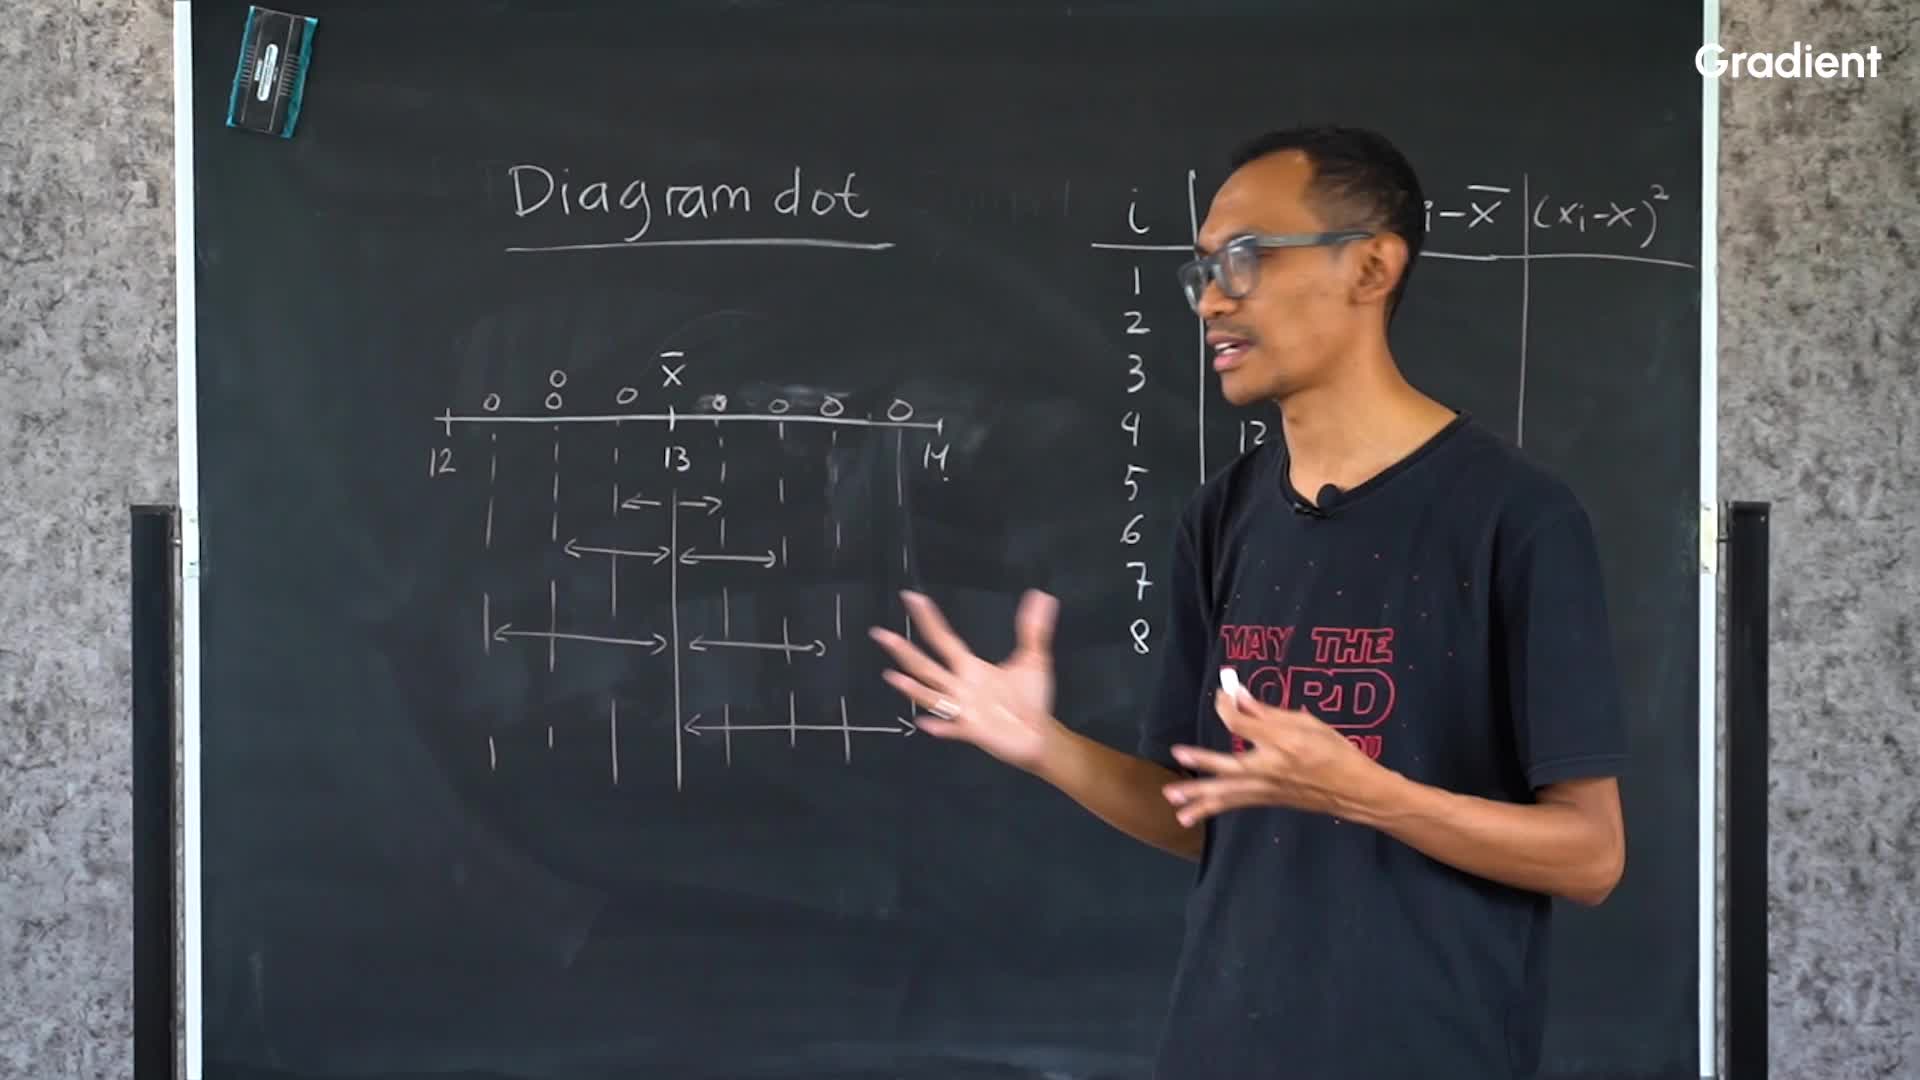 Gradient
Diagram dot
x̄
12 13 14
i i-x̄ (xi-x)²
1
2
3
4 12
5
6
7
8
MAY THE
LORD